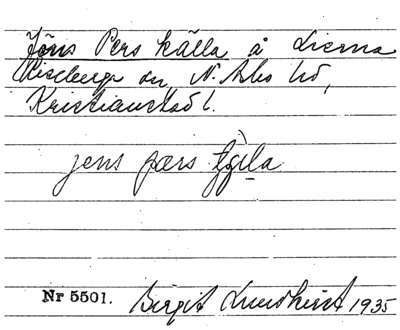 Jöns Pers källa å Lierna
Riseberga sn, N. Åsbo hd,
Kristianstad l.
jens pærs
Nr 5501. Birgit Lundkvist 1935